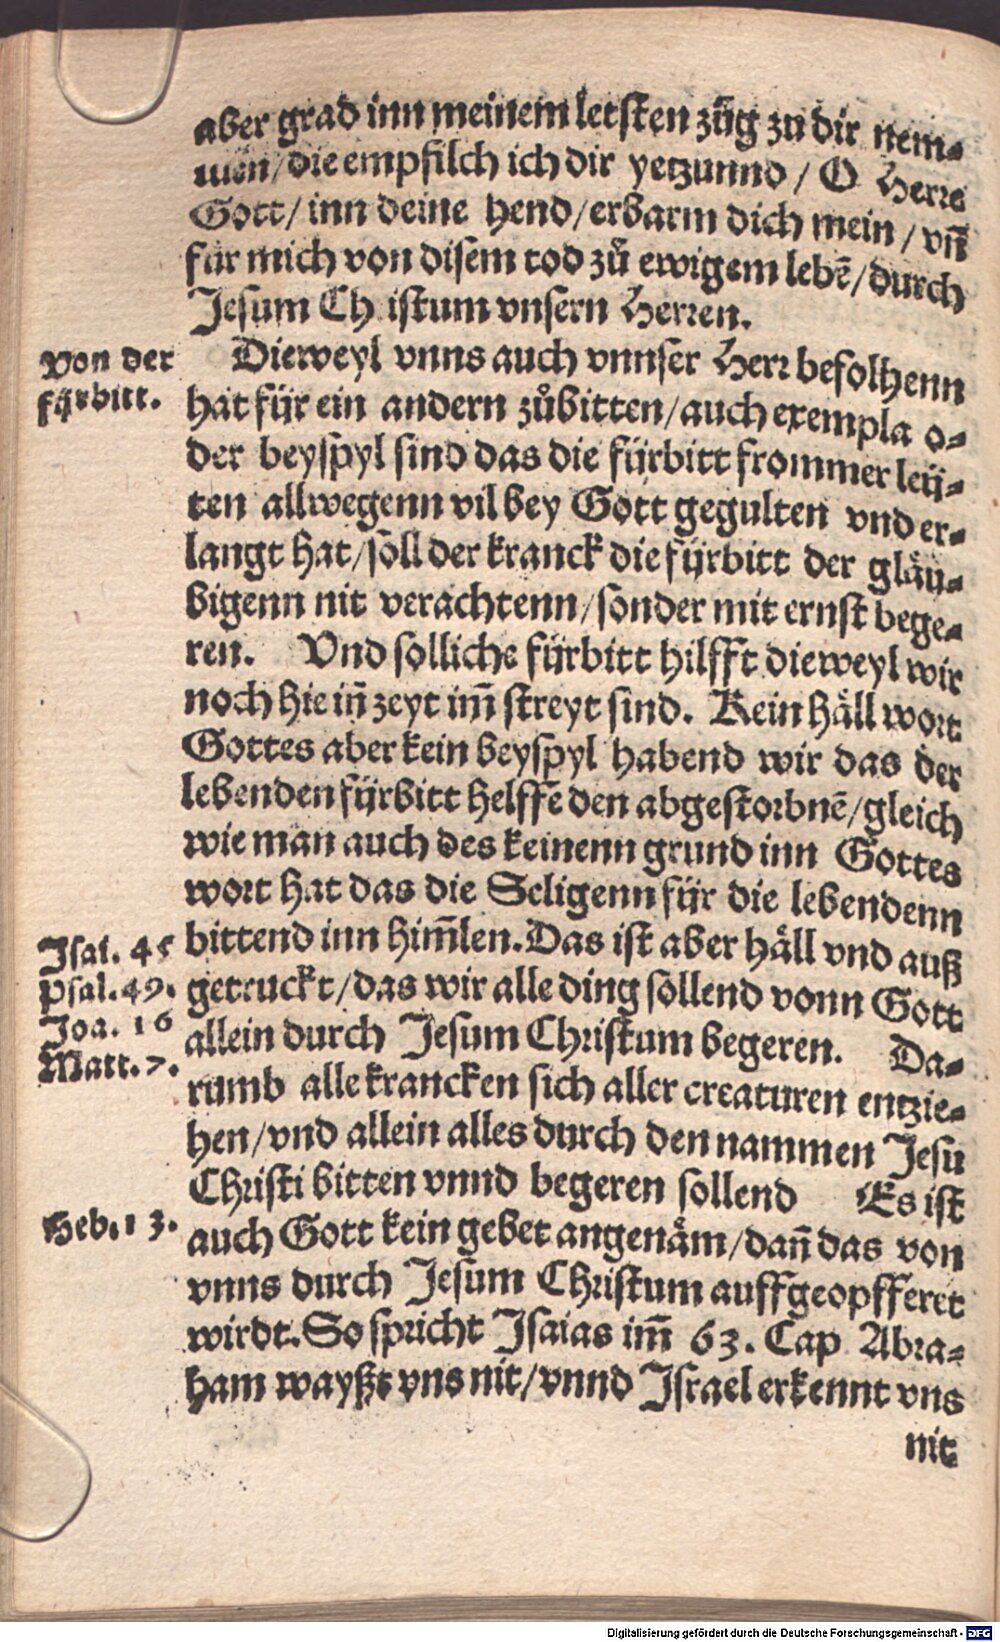 aber grad inn meinem letsten züg zu dir nem⸗
men/die empfilch ich dir yetzunnd / O Herre
Gott/ inn deine hend/erbarm dich mein / vñ
für mich von disem tod zů ewigem lebē/durch
Jesum Ch istum vnsern Herren.
Von der
fürbitt.
Dieweyl vnns auch vnnser Herr befolhenn
hat für ein andern zůbitten/auch exempla o⸗
der beyspyl sind das die fürbitt frommer leü⸗
ten allwegenn vil bey Gott gegulten vnd er⸗
langt hat/soll der kranck die fürbitt der gläu⸗
bigenn nit verachtenn/sonder mit ernst bege⸗
ren. Vnd solliche fürbitt hilfft dieweyl wir
noch hie iñ zeyt im̃ streyt sind. Kein häll wort
Gottes aber kein beyspyl habend wir das der
lebenden fürbitt helffē den abgestorbnē/gleich
wie man auch des keinenn grund inn Gottes
wort hat das die Seligenn für die lebendenn
bittend inn him̃len. Das ist aber häll vnd auß
getruckt/das wir alle ding sollend vonn Gott
allein durch Jesum Christum begeren. Da⸗
rumb alle krancken sich aller creaturen entzie⸗
hen/vnd allein alles durch den nammen Jesu
Christi bitten vnnd begeren sollend Es ist
auch Gott kein gebet angenäm/dañ das von
vnns durch Jesum Christum auffgeopfferet
wirdt. So spricht Isaias im̃ 63. Cap Abra⸗
ham wayßt vns nit/vnnd Israel erkennt vns
nit
Isai. 45
Psal. 49.
Joa. 16
Matt. 7.
Heb. 13.
Digitalisierung gefördert durch die Deutsche Forschungsgemeinschaft - DFG